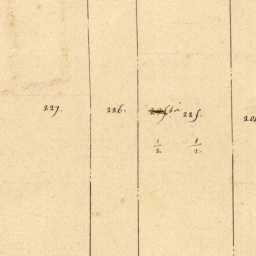 227. 226. 225.
1/2. 1/2.